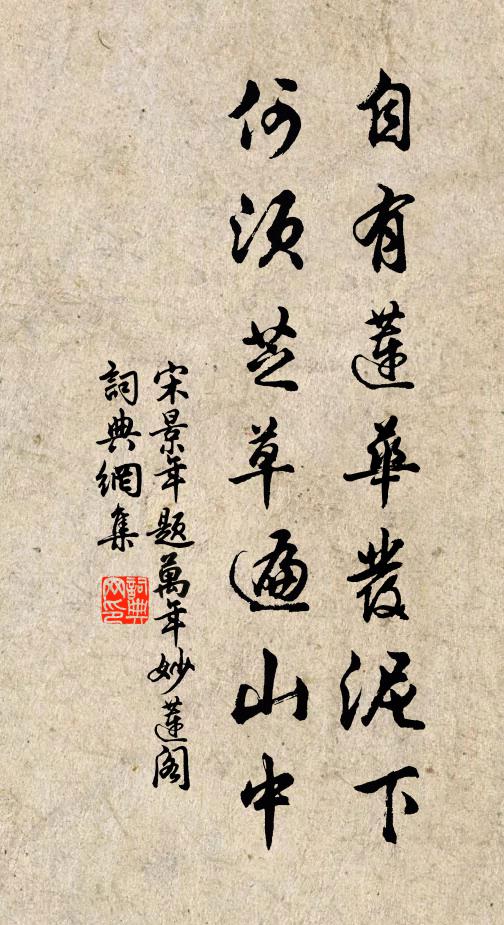 自有蓮華發泥下
何須芝草遍山中
宋景年題萬年妙蓮閣
詞典網集
詞典網印